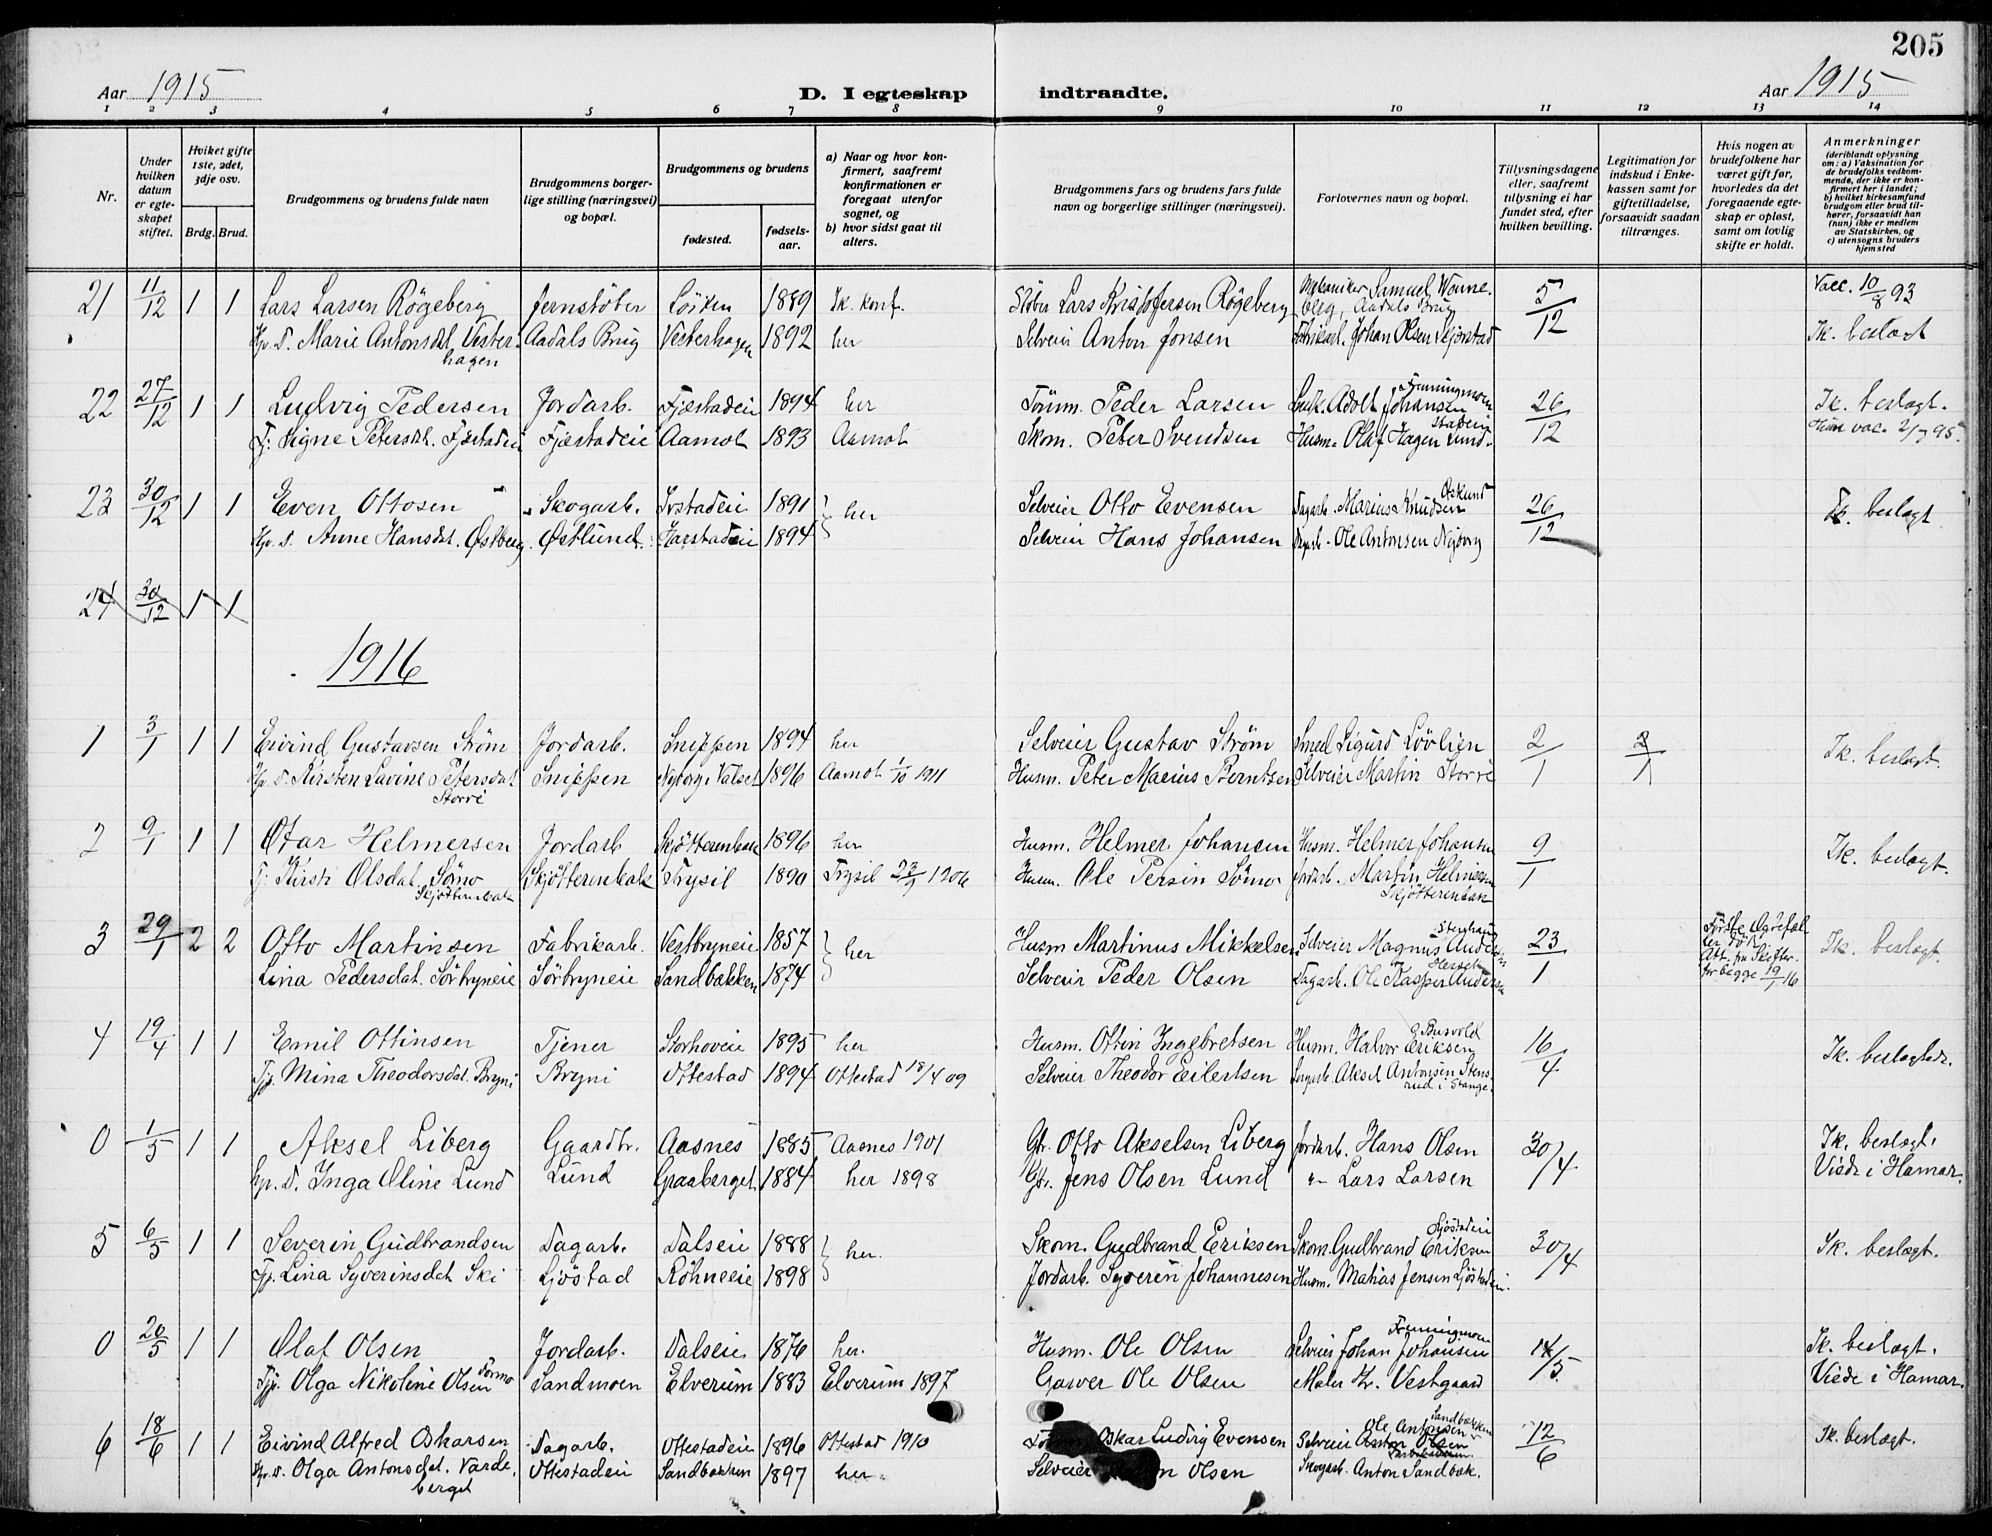 205
Aar 1915 D. I egteskap indtraadte. Aar 1915
1 2 3 4 5 6 7 8 9 10 11 12 13 14
Nr.
Under hvilken datum er egteskapet stiftet.
Hviket gifte 1ste, 2det, 3dje osv.
Brdg. Brud.
Brudgommens og brudens fulde navn
Brudgommens borgerlige stilling (næringsvei) og bopæl.
Brudgommens og brudens
fødested. fødselsaar.
a) Naar og hvor konfirmert, saafremt konfirmationen er foregaat utenfor sognet, og
b) hvor sidst gaat til alters.
Brudgommens fars og brudens fars fulde navn og borgerlige stillinger (næringsvei).
Forlovernes navn og bopæl.
Tillysningsdagene eller, saafremt tillysning ei har fundet sted, efter hvilken bevilling.
Legitimation for indskud i Enkekassen samt for giftetilladelse, forsaavidt saadan tiltrænges.
Hvis nogen av brudefolkene har været gift før, hvorledes da det foregaaende egteskap er opløst, samt om lovlig skifte er holdt.
Anmerkninger (deriblandt oplysning om: a) Vaksination for de brudefolks vedkommende, der ikke er konfirmert her i landet; b) hvilket kirkesamfund brudgom eller brud tilhører, forsaavidt han (hun) ikke er medlem av Statskirken, og c) utensogns bruders hjemsted
21 11/12 1 1 Lars Larsen Rögeberg Jernstöber Löiten 1889 Ik. konf. Stöber Lars Kristoffersen Rögeberg Mekaniker Samuel Wenneberg, Aadals Brug 5/12 Vacc. 10/8 93
Hp. D. Marie Antonsdat. Vesterhagen Aadals Brug Vesterhagen 1892 her Selveier Anton Jonsen Johan Olsen Ik. beslægt
22 27/12 1 1 Ludvig Pedersen Jordarb. Fjæstadeie 1894 her Tömm. Peder Larsen Adolf Johansen 26/12 Ik. beslægt.
Tj. Signe Petersdt. Fjæstadeie Fjæstadeie Aamot 1893 Aamot Skom. Peter Svendsen Husm. Olaf Hagen Hun vac.
23 30/12 1 1 Even Ottosen Skogarb. 1891 her Selveier Otto Evensen Dagarb. Marius Knudsen Østlund 26/12 Ik. beslægt
Hp. D. Anne Hansdat. Østberg Østlund Harstadeie 1894 Selveier Hans Johansen Dagarb. Ole Antonsen Nyborg
24 30/12 1 1
1916
1 3/1 1 1 Eivind Gustavsen Ström Jordarb. Snippen 1894 her Selveier Gustav Ström Smed Sigurd Lövlien 2/1 2/1 Ik. beslægt.
Hp. D. Kirsten Lavine Petersdat. Storvi Snippen Nyborg i Valset 1896 Aamot 1/10 1911 Husm. Peter Marius Berntsen Selveier Martin Storvi
2 9/1 1 1 Otar Helmersen Jordarb Skjötterenbak 1896 her Husm. Helmer Johansen Husm. Helmer Johansen 9/1 Ik. beslægt.
Tj. Kirsti Olsdat. Sömo Skjötterenbak Skjötterenbak Trysil 1890 Trysil 23/9 1906 Husm. Ole Persen Sömo Jordarb. Martin Helmersen Skjötterenbak
3 29/1 2 2 Otto Martinsen Fabrikarb. Vestbryneie 1857 her Husm Martinus Mikkelsen Selveier Magnus Andersen 23/1 for begge 19/1 16 Ik. beslægt.
Lina Pedersdat. Sörbryneie Sörbryneie Sandbakken 1874 Selveier Peder Olsen Dagarb. Ole Kasper Andersen
4 19/4 1 1 Emil Ottinsen Tjener Storhoveie 1895 her Husm. Ottin Ingebretsen Husm. Halvor Eriksen 16/4 Ik. beslægtede.
Tjp. Mina Theodorsdat. Bryni Bryni Ottestad 1894 Ottestad 18/4 09 Selveier Theodor Eilertsen Aksel Antonsen Stensrud i Stange.
0 1/5 1 1 Aksel Liberg Gaardbr. Aasnes 1885 Aasnes 1901 Gbr. Otto Akselsen Liberg Jordarb. Hans Olsen 30/4 Ik. beslægt.
Hp. D. Inga Oline Lund Lund Graaberget 1884 her 1898 Gbr. Jens Olsen Lund "– Lars Larsen Viede i Hamar.
5 6/5 1 1 Severin Gudbrandsen Dagarb. Dalseie 1888 her. Skom. Gudbrand Eriksen Skom. Gudbrand Eriksen 30/4 Ik. beslægt.
Tjp. Lina Syverinsdat. Ski Ljöstad Röhneeie 1898 Jordarb. Syverin Johannesen Husm. Matias Jensen Ljöstadeie.
0 20/5 1 1 Olaf Olsen Jordarb. Dalseie 1876 her. Husm. Ole Olsen Selveier Johan Johansen 14/5 Ik. beslægt.
Tjp. Olga Nikoline Olsen Sandmoen Elverum 1883 Elverum 1897 Garver Ole Olsen Maler Kr. Vestgaard Viede i Hamar.
6 18/6 1 1 Eivind Alfred Oskarsen Dagarb. Ottestadeie 1896 Ottestad 1910 Oskar Ludvig Evensen Selveier Ole Antonsen Sandbakken 12/6 Ik. beslægt.
Hp. D. Olga Antonsdat. Vardeberget Ottestadeie Sandbakken 1897 her. Selveier Olsen Skogarb. Anton Sandbæk.